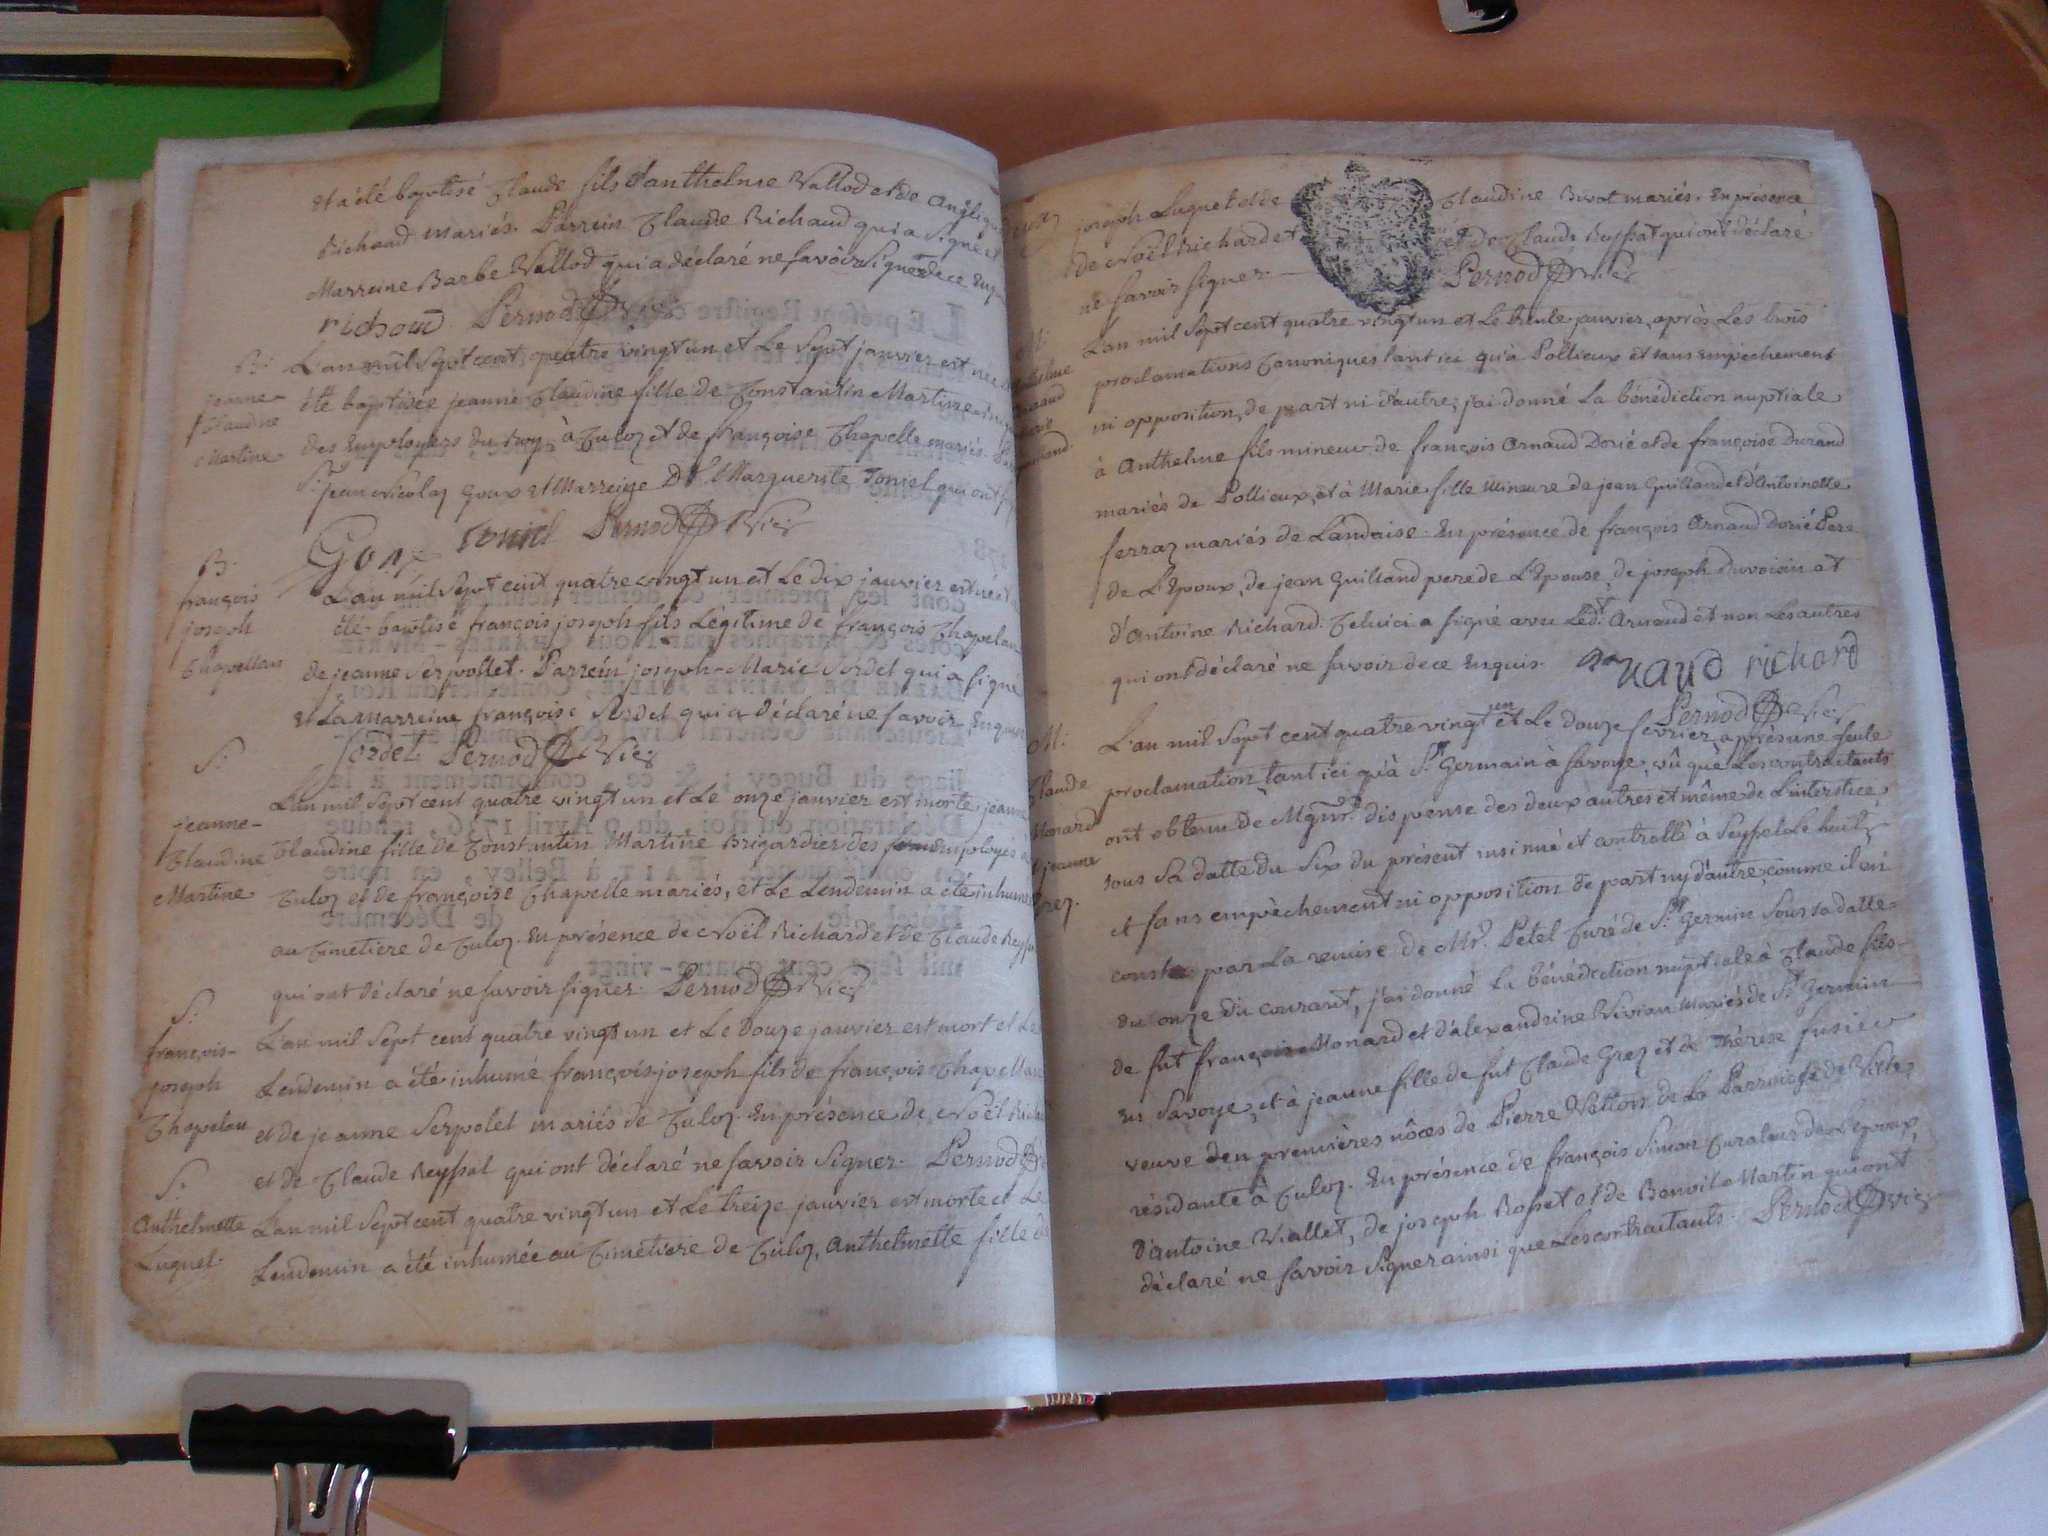 et a été baptisé Claude fils d'anthelme Vallod et de Angélique
Richaud mariés. Parrein Claude Richaud qui a Signé et
Marreine Barbe Vallod qui a déclaré ne savoir Signer de ce Enq
richaud Pernod Vic
B: L'an mil Sept cent quatre vingt un et Le Sept janvier est née et
jeanne Claudine Martine
été baptisée jeanne Claudine fille de Constantin Martine
des Employers du Roy à Culoz et de françoise Chapelle mariés.
Sr. jean Nicolas Goux et Marreine Dlle Marguerite Toniel qui ont
Goux Toniel Pernod Vic
B. françois joseph Chapellan
L'an mil Sept cent quatre vingt un et Le dix janvier est né et
été baptisé françois joseph fils Légitime de françois Chapelan
de jeanne Serpollet. Parrein joseph-Marie Sordet qui a signé
et La marreine françoise Sordet qui a déclaré ne savoir Enquise
Sordet Pernod Vic
S: jeanne-Claudine Martine
L'an mil Sept cent quatre vingt un et Le onze janvier est morte jeanne
Claudine fille de Constantin Martine Brigardier des Employés à
Culoz et de françoise Chapelle mariés, et Le Lendemin a été inhumée
au Cimetiere de Culoz. En présence de Noël Richard et de Claude Reyssat
qui ont déclaré ne savoir signer. Pernod Vic
S: françois-joseph Chapelan
L'an mil Sept cent quatre vingt un et Le Douze janvier est mort et Le
Lendemin a été inhumé françois joseph fils de françois Chapellan
et de jeanne Serpolet mariés de Culoz. En présence de Noël Richard
et de Claude Reyssat qui ont déclaré ne savoir Signer. Pernod
S: Anthelmette Luquet
L'an mil Sept cent quatre vingt un et Le treize janvier est morte et Le
Lendemin a été inhumée au Cimetiere de Culoz, Anthelmette fille de
joseph Luquet et de Claudine Buvot mariés. En présence
de Noël richard et et de Claude Reyssat qui ont déclaré
ne savoir signer. Pernod Vic
L'an mil Sept cent quatre vingt un et Le trente janvier, après Les trois
proclamations Canoniques tant ici qu'à Pollieux et sans empêchement
ni opposition, de part ni d'autre, j'ai donné La bénédiction nuptiale
à Anthelme fils mineur de françois Arnaud Dorié et de françoise Durand
mariés de Pollieux, et à Marie fille Mineure de jean Guilland et d'Antoinette
ferraz mariés de Landaise. En présence de françois Arnaud Dorié Pere
de L'Epoux, de jean Guilland pere de L'Epouse, de joseph Duvoisin et
d'Antoine Richard. Celui ci a signé avec Ledt. Arnaud et non Les autres
qui ont déclaré ne savoir de ce Enquis. arnaud richard
Pernod Vic
M: Claude Monard jeanne Grez.
L'an mil Sept cent quatre vingt un et Le douze fevrier, après une seule
proclamation tant ici qu'à St. Germain à Savoye, vû que Les contractants
ont obtenu de Mgnr. dispense des deux autres et même de L'interstice
sous Sa datte du Six du présent insinué et controllé à Seyssel Le huit
et sans empêchement ni opposition de part ny d'autre, comme il en
conste par La remise de Mr. Petel Curé de St. Germin Sous sa datte
du onze du courant, j'ai donné La bénédiction nuptiale à Claude fils
de fut françois Monard et d'alexandrine Vivian Mariés de St. Germin
en Savoye, et à jeanne fille de fut Claude Grez et de Thérèse fusier
veuve d'en premières nôces de Pierre Vettois de La Parroisse de Virter
résidante à Culoz. En présence de françois Simon Curateur de L'Epoux,
d'Antoine Viallet, de joseph Rosset et de Benoit Martin qui ont
déclaré ne savoir Signer ainsi que Les contractants. Pernod Vic